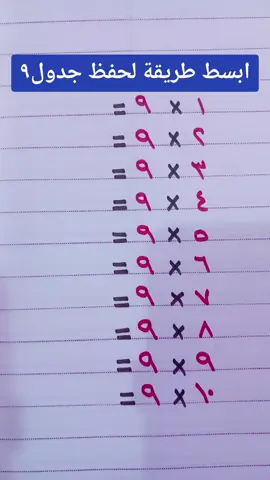 ابسط طريقة لحفظ جدول٩
١ × ٩ =
٢ × ٩ =
٣ × ٩ =
٤ × ٩ =
٥ × ٩ =
٦ × ٩ =
٧ × ٩ =
٨ × ٩ =
٩ × ٩ =
١٠ × ٩ =